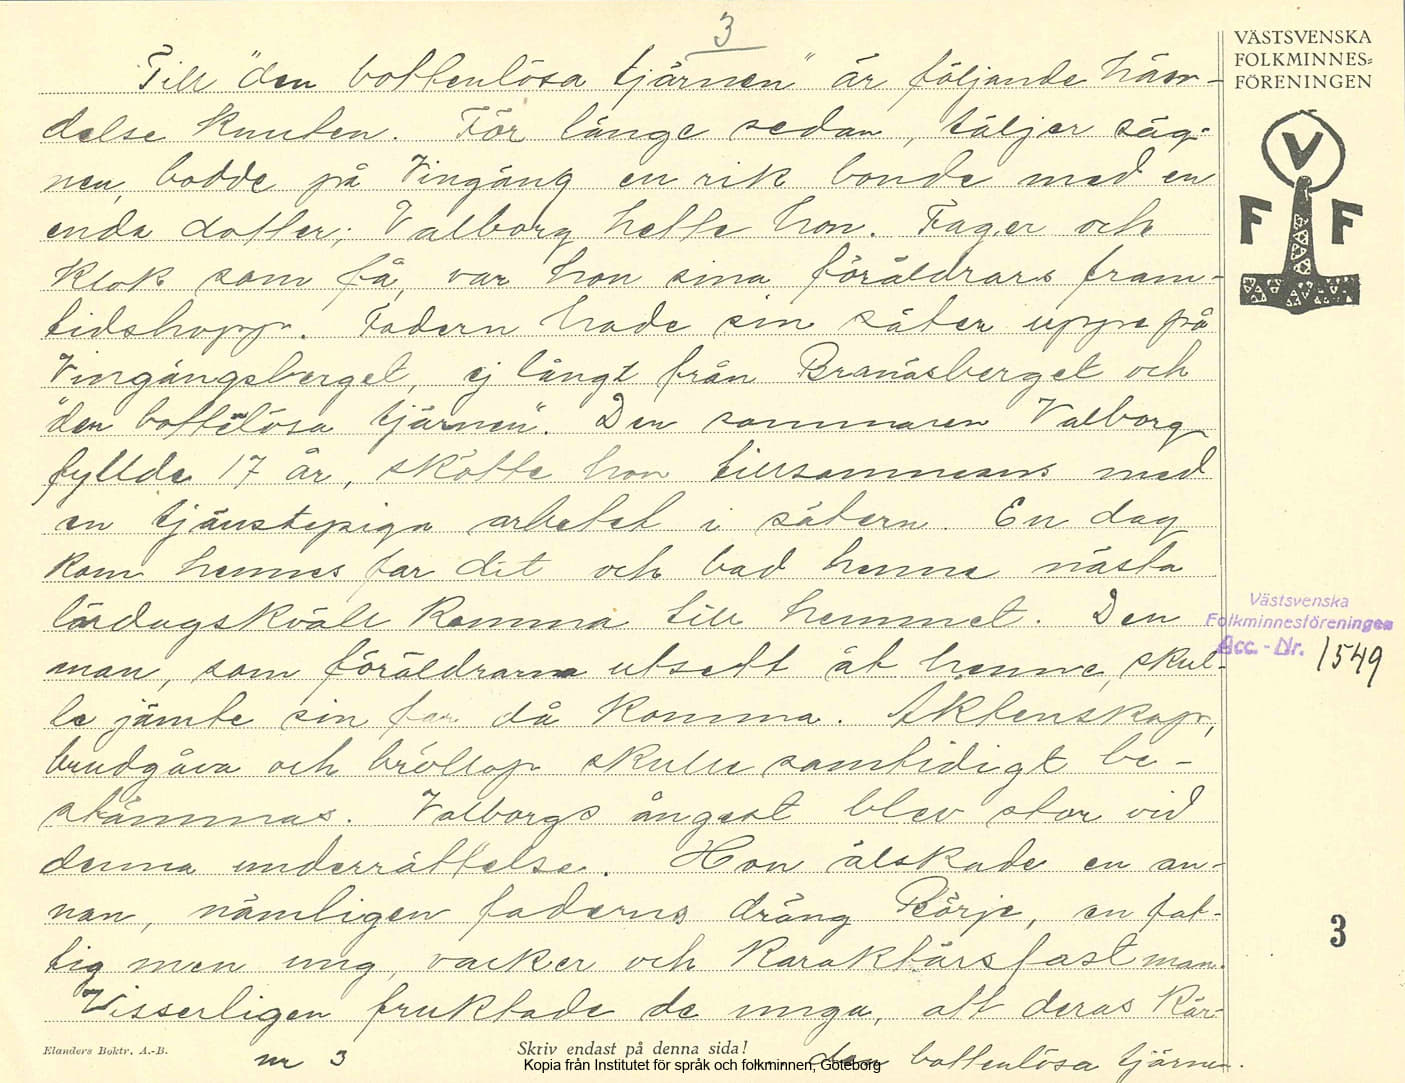 3
Till "den bottenlösa tjärnen" är följande hän-
delse knuten. För länge sedan, täljer säg-
nen, bodde på Vingäng en rik bonde med en
enda dotter; Valborg hette hon. Fager och
klok som få, var hon sina föräldrars fram-
tidshopp. Fadern hade sin säter uppe på
Vingängsberget, ej långt från Branäsberget och
"den bottenlösa tjärnen". Den sommaren Valborg
fyllde 17 år, skötte hon tillsammans med
en tjänstepiga arbetet i sätern. En dag
kom hennes far dit och bad henne nästa
lördagskväll komma till hemmet. Den
man, som föräldrarna utsett åt henne, skul-
le jämte sin far då komma. Äktenskap,
brudgåva och bröllop skulle samtidigt be-
stämmas. Valborgs ångest blev stor vid
denna underrättelse. Hon älskade en an-
nan, nämligen faderns dräng Börje, en fat-
tig men ung, vacker och karaktärsfast man.
Visserligen fruktade de unga, att deras kär-
Elanders Boktr. A.-B.
nr 3
Skriv endast på denna sida!
den bottenlösa tjärnen.
Kopia från Institutet för språk och folkminnen, Göteborg
VÄSTSVENSKA
FOLKMINNES-
FÖRENINGEN
V
F F
Västsvenska
Folkminnesföreningen
Acc.-Nr. 1549
3